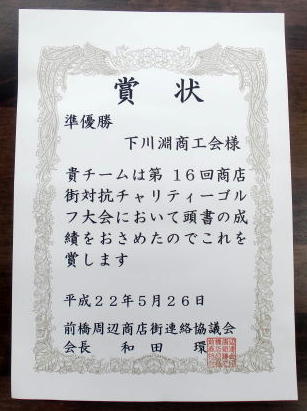 賞状
準優勝
下川淵商工会様
貴チームは第16回商店
街対抗チャリティーゴル
フ大会において頭書の成
績をおさめたのでこれを
賞します
平成22年5月26日
前橋周辺商店街連絡協議会
会長 和田 環